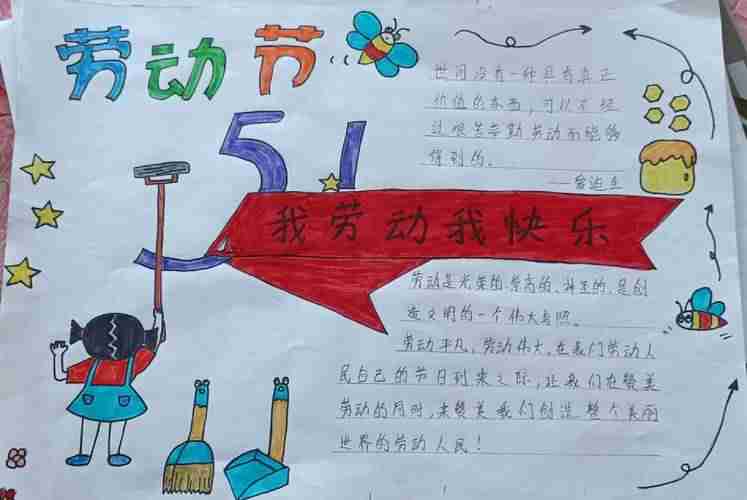 劳动节
世间没有一种具有真正
价值的东西，可以不经
过艰苦辛勤劳动而能够
得到的。
——爱迪生
5.1
我劳动我快乐
劳动是光荣的、崇高的、神圣的、是创
造文明的一个伟大
劳动平凡，劳动伟大，在我们劳动人
民自己的节日到来之际，让我们在赞美
劳动的同时，来赞美我们创造整个美丽
世界的劳动人民！